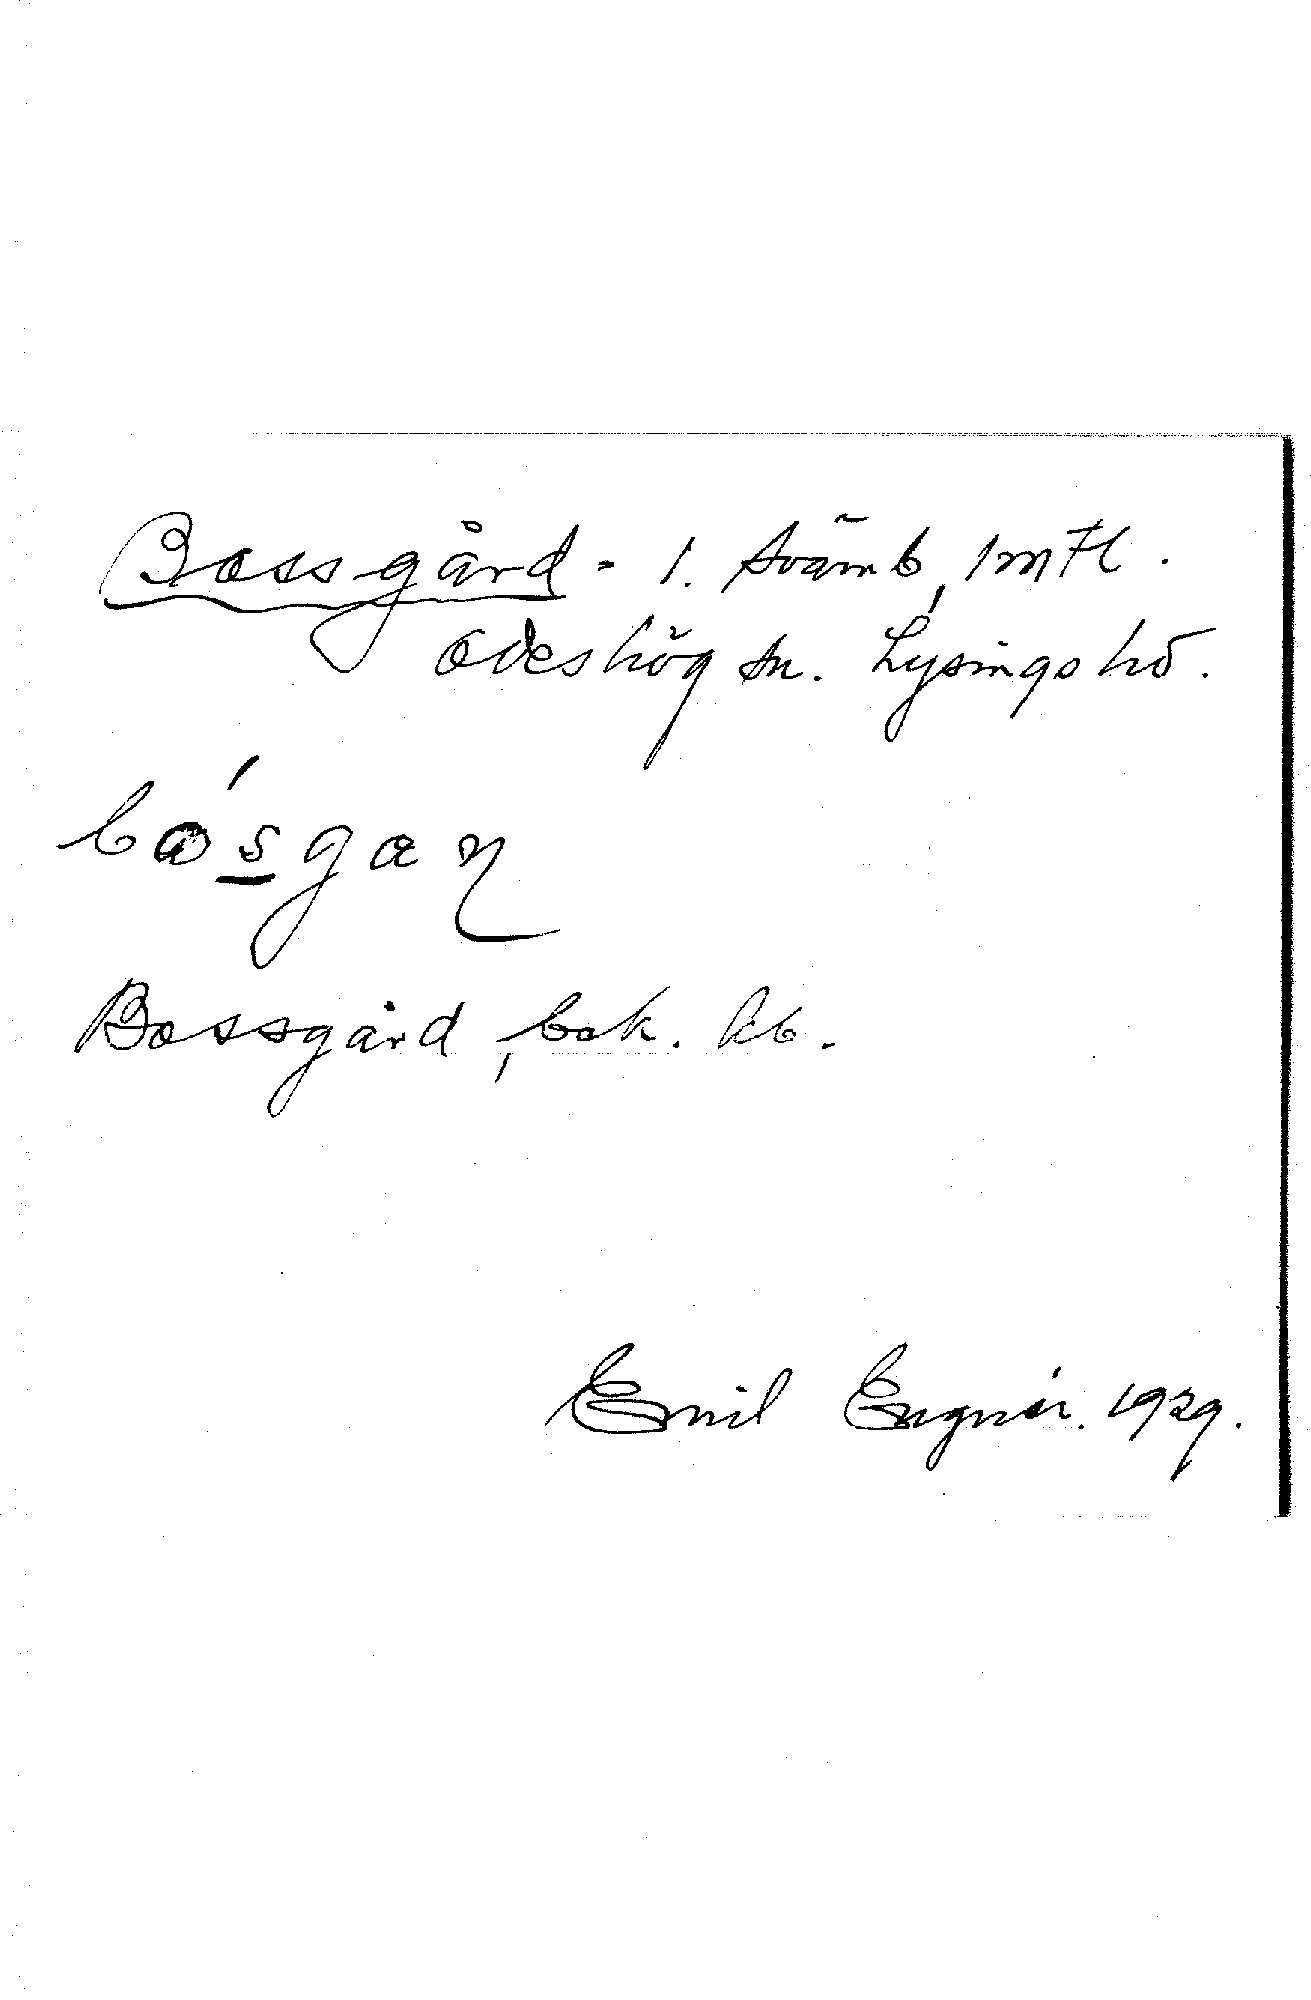 Bossgård - 1. Svämb, 1 m Fl.
Ödeshög sn. Lysings hd.
bósgaɳ
Bossgård, bok. kb.
Emil Engnér. 1929.